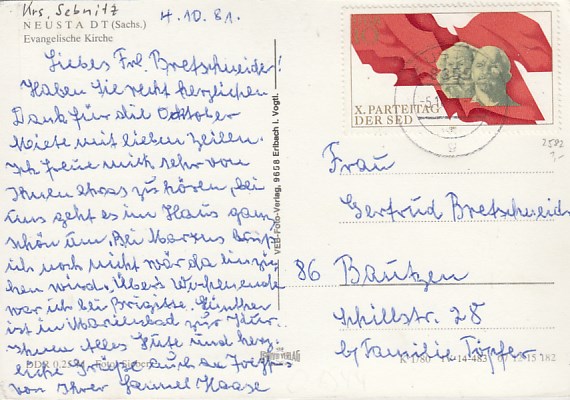 Krs. Sebnitz
NEUSTADT (Sachs.)
Evangelische Kirche
4.10.81.
Liebes Frl. Bretschneider!
Haben Sie recht herzlichen
Dank für die Oktober
Miete mit lieben Zeilen.
Ich freue mich sehr von
Ihnen etwas zu hören, bei
uns geht es im Haus ganz
schön um. Bei
ich noch nicht wer da einzie
hen wird. Übers Wochenende
war ich bei Brigitte. Günther
ist in Marienbad zur Kur.
Ihnen Alles Gute und herz
liche Grüße auch an
von Ihrer Haase
DDR 0,25 M
VEB-Foto-Verlag, 9658 Erlbach i. Vogtl.
X. PARTEITAG
DER SED
2582
Frau
Gertrud Bretschneider
86 Bautzen
Schillstr. 28
b/ Familie Töpfer
K 1/80